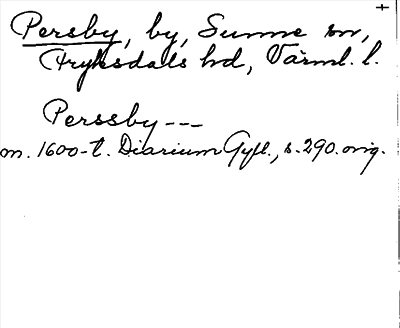 +
Persby, by, Sunne sn,
Fryksdals hd, Värml. l.
Perssby---
m. 1600-t. Diarium Gyll., s. 290. orig.